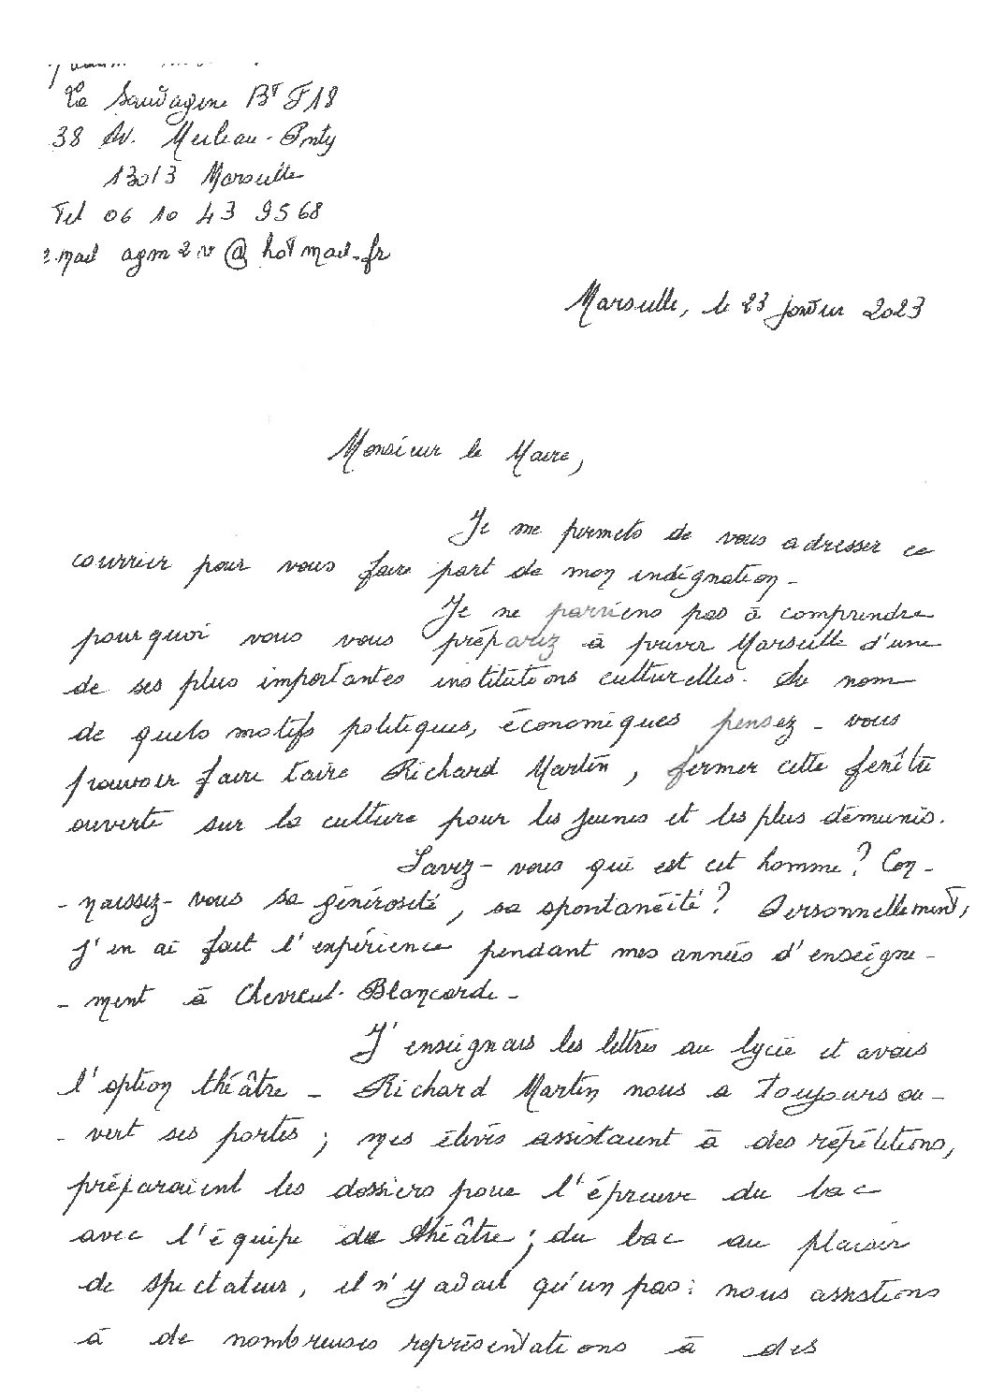 La Sauvagine Bt F18
38 Av. Merleau-Ponty
13013 Marseille
Tel 06 10 43 95 68
e.mail agm2iv@hotmail.fr
Marseille, le 23 janvier 2023
Monsieur le Maire,
Je me permets de vous adresser ce
courrier pour vous faire part de mon indignation_
Je ne parviens pas à comprendre
pourquoi vous vous préparez à priver Marseille d'une
de ses plus importantes institutions culturelles. Au nom
de quels motifs politiques, économiques pensez-vous
pouvoir faire taire Richard Martin, fermer cette fenêtre
ouverte sur la culture pour les jeunes et les plus démunis.
Savez-vous qui est cet homme? Con-
-naissez-vous sa générosité, sa spontanéité? Personnellement,
j'en ai fait l'expérience pendant mes années d'enseigne-
-ment à Chevreul-Blancarde_
J'enseignais les lettres au lycée et avais
l'option théâtre_ Richard Martin nous a toujours ou-
-vert ses portes; mes élèves assistaient à des répétitions,
préparaient les dossiers pour l'épreuve du bac
avec l'équipe du théâtre; du bac au plaisir
de spectateur, il n'y avait qu'un pas: nous assistions
à de nombreuses représentations à des